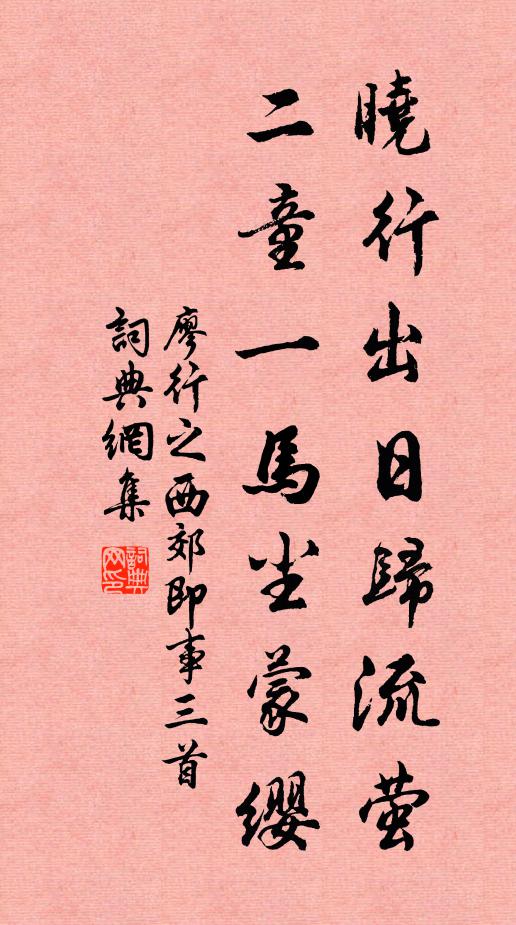 曉行出日歸流萤
二童一馬尘蒙缨
廖行之西郊即事三首
詞典網集
詞典网印